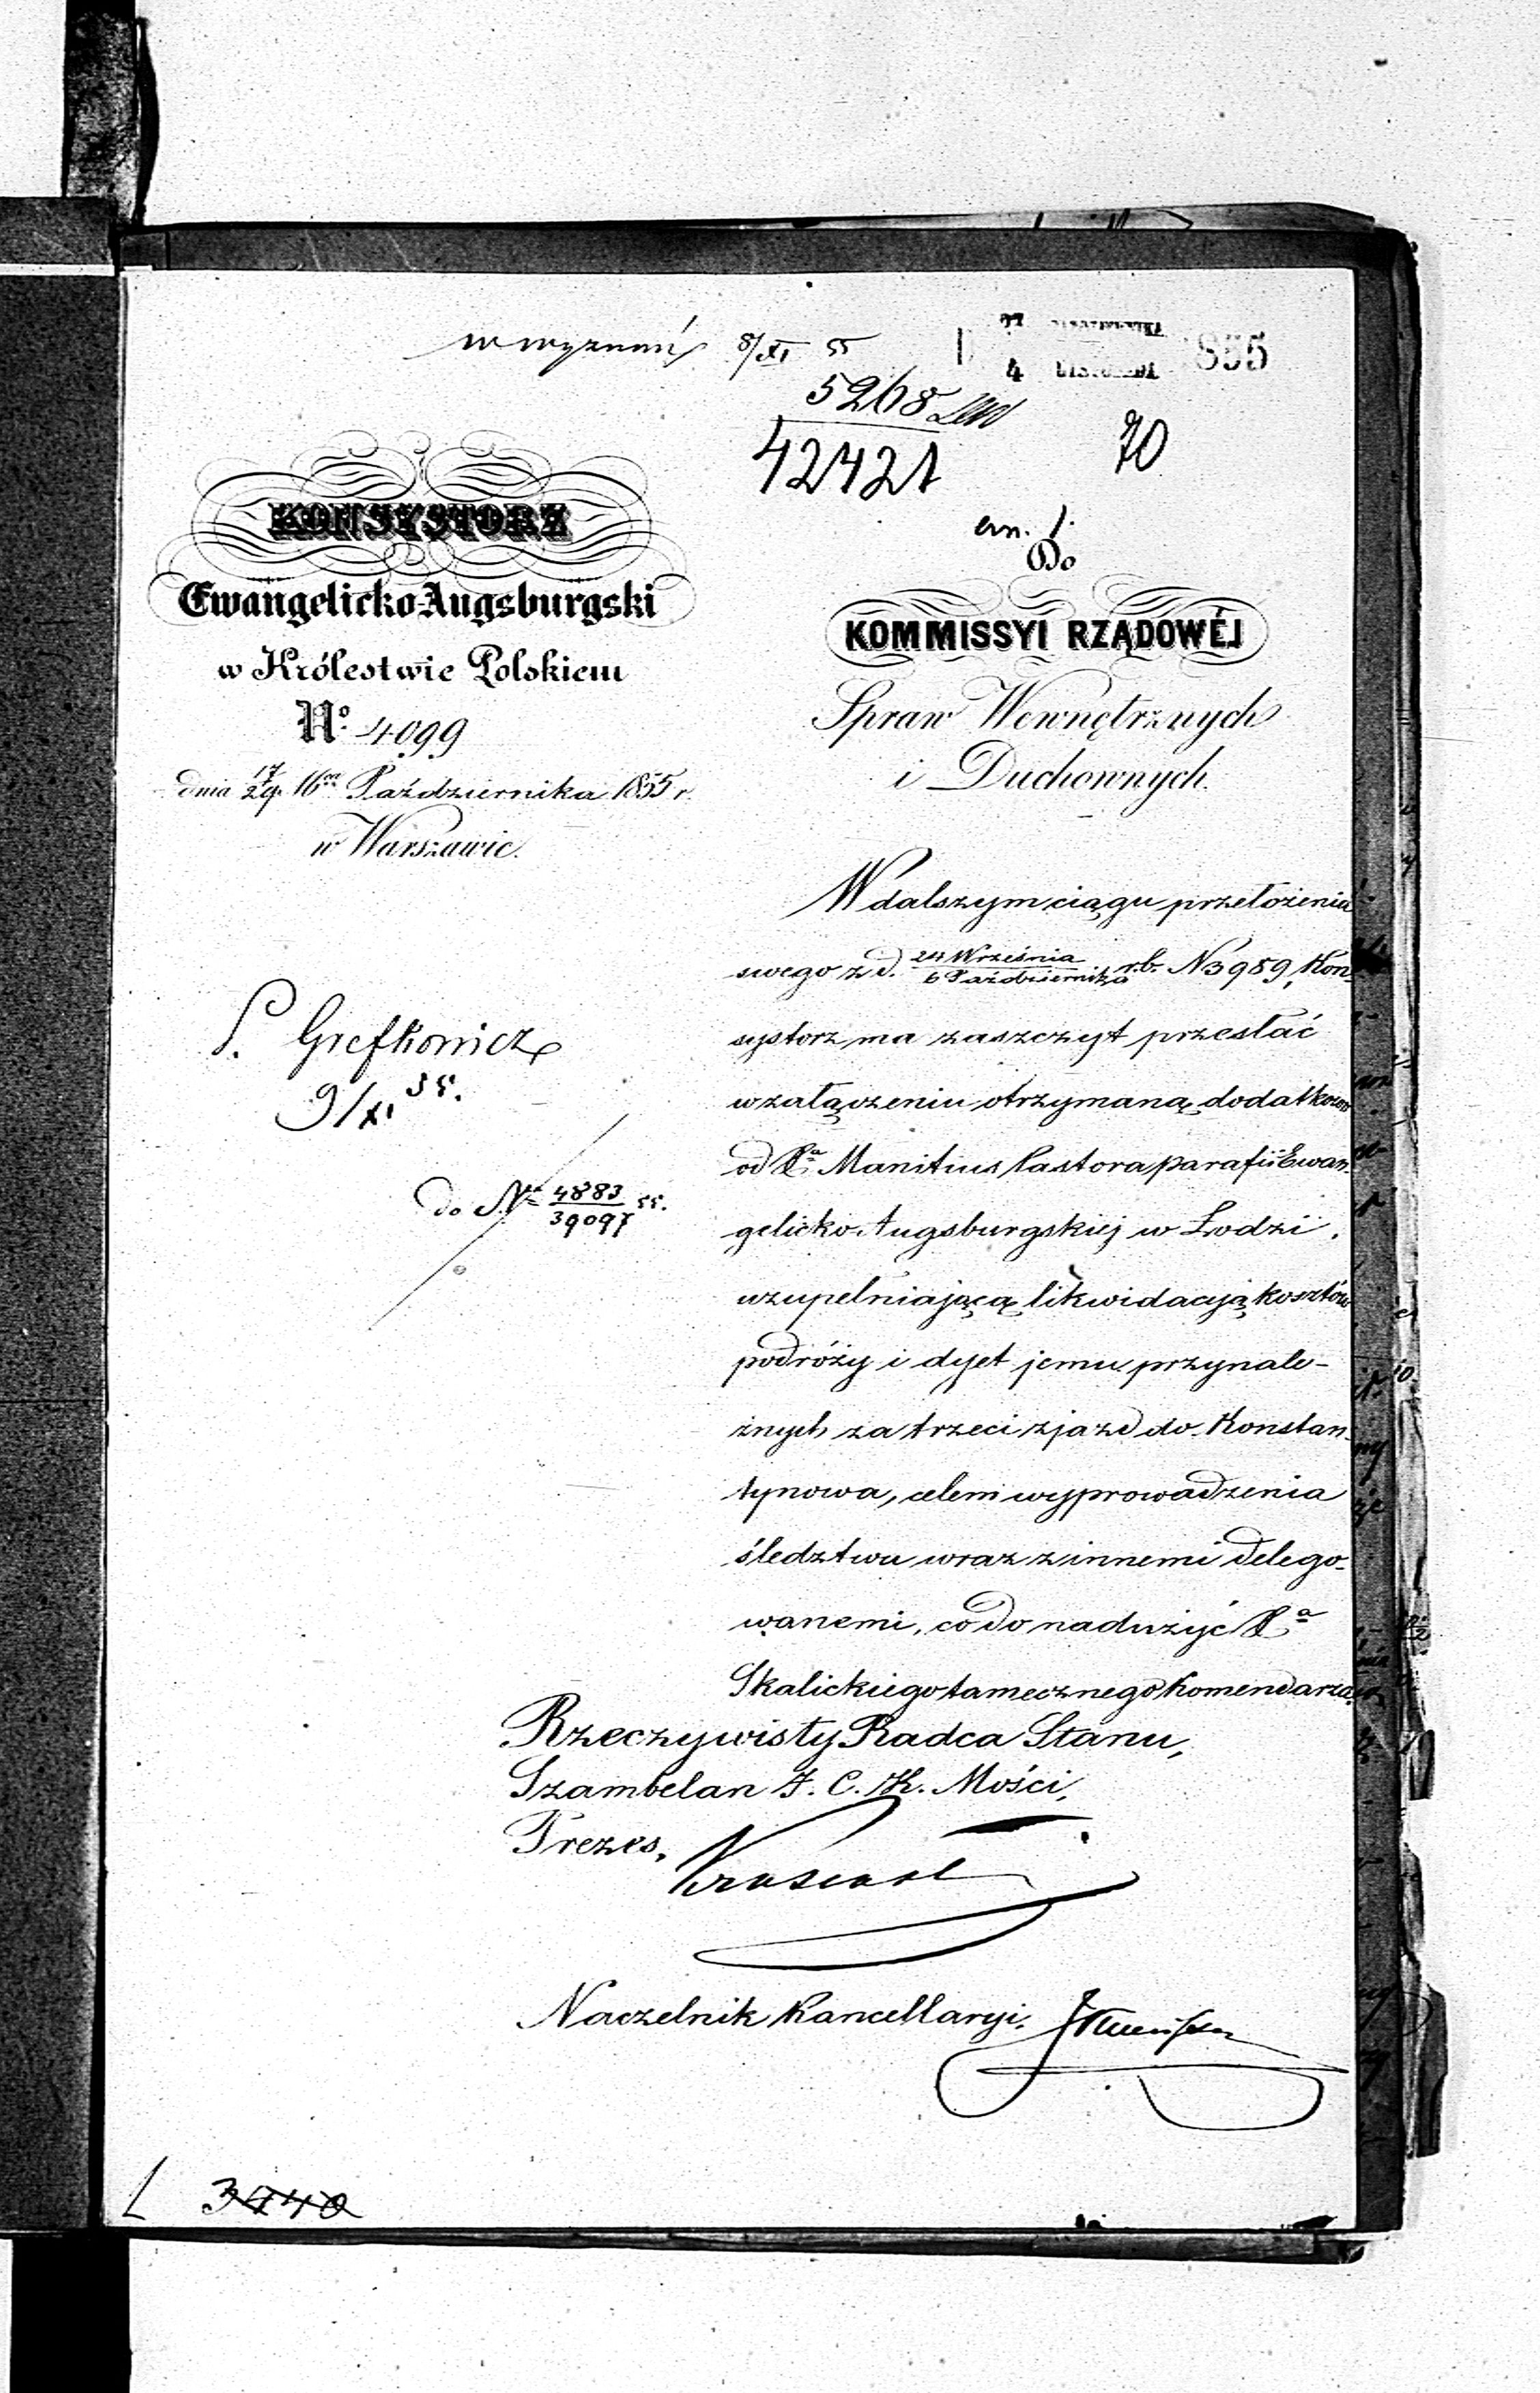 w wyznań 8/XI 55
4 1855
5268
42421
70
an. 1.
KONSYSTORZ
Ewangelicko-Augsburgski
w Królestwie Polskiem
No 4099
dnia 17/29 16ca Października 1855 r.
w Warszawie.
Do
KOMMISSYI RZĄDOWÉJ
Spraw Wewnętrznych
i Duchownych.
P. Grefkowicz
9/XI 55.
do Nra 4883/39097 55.
W dalszym ciągu przełożenia
swego z d. 24 Września/6 Października r.b. N 3989, Kon-
systorz ma zaszczyt przesłać
w załączeniu otrzymaną dodatkowo
od Xa Manitius Pastora parafii Ewan-
gelicko-Augsburgskiej w Łodzi,
uzupełniającą likwidacyją kosztów
podróży i dyet jemu przynale-
żnych za trzeci zjazd do Konstan-
tynowa, celem wyprowadzenia
śledztwu wraz z innemi delego-
wanemi, co do nadużyć Xa
Skalickiego tamecznego Komendarza.
Rzeczywisty Radca Stanu,
Szambelan J. C. K. Mości,
Prezes,
Naczelnik Kancellaryi,
3740